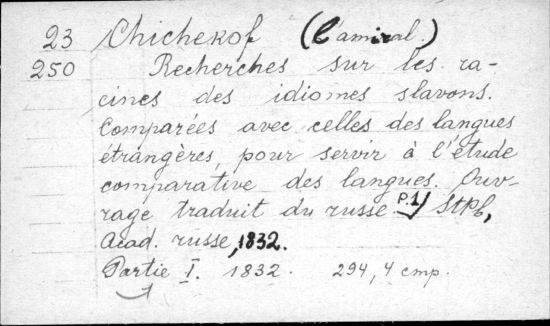 23 Chichekof (l'amiral.)
250 Recherches sur les ra-
cines des idiomes slavons.
Comparées avec celles des langues
étrangères, pour servir à l'étude
comparative des langues. Ouv-
rage traduit du russe P.1/ StPb,
Acad. russe, 1832.
Partie I. 1832. 294, 4 cmp.